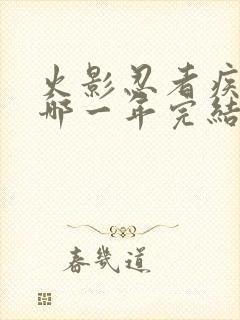 火影忍者疾
哪一年完結
春幾道